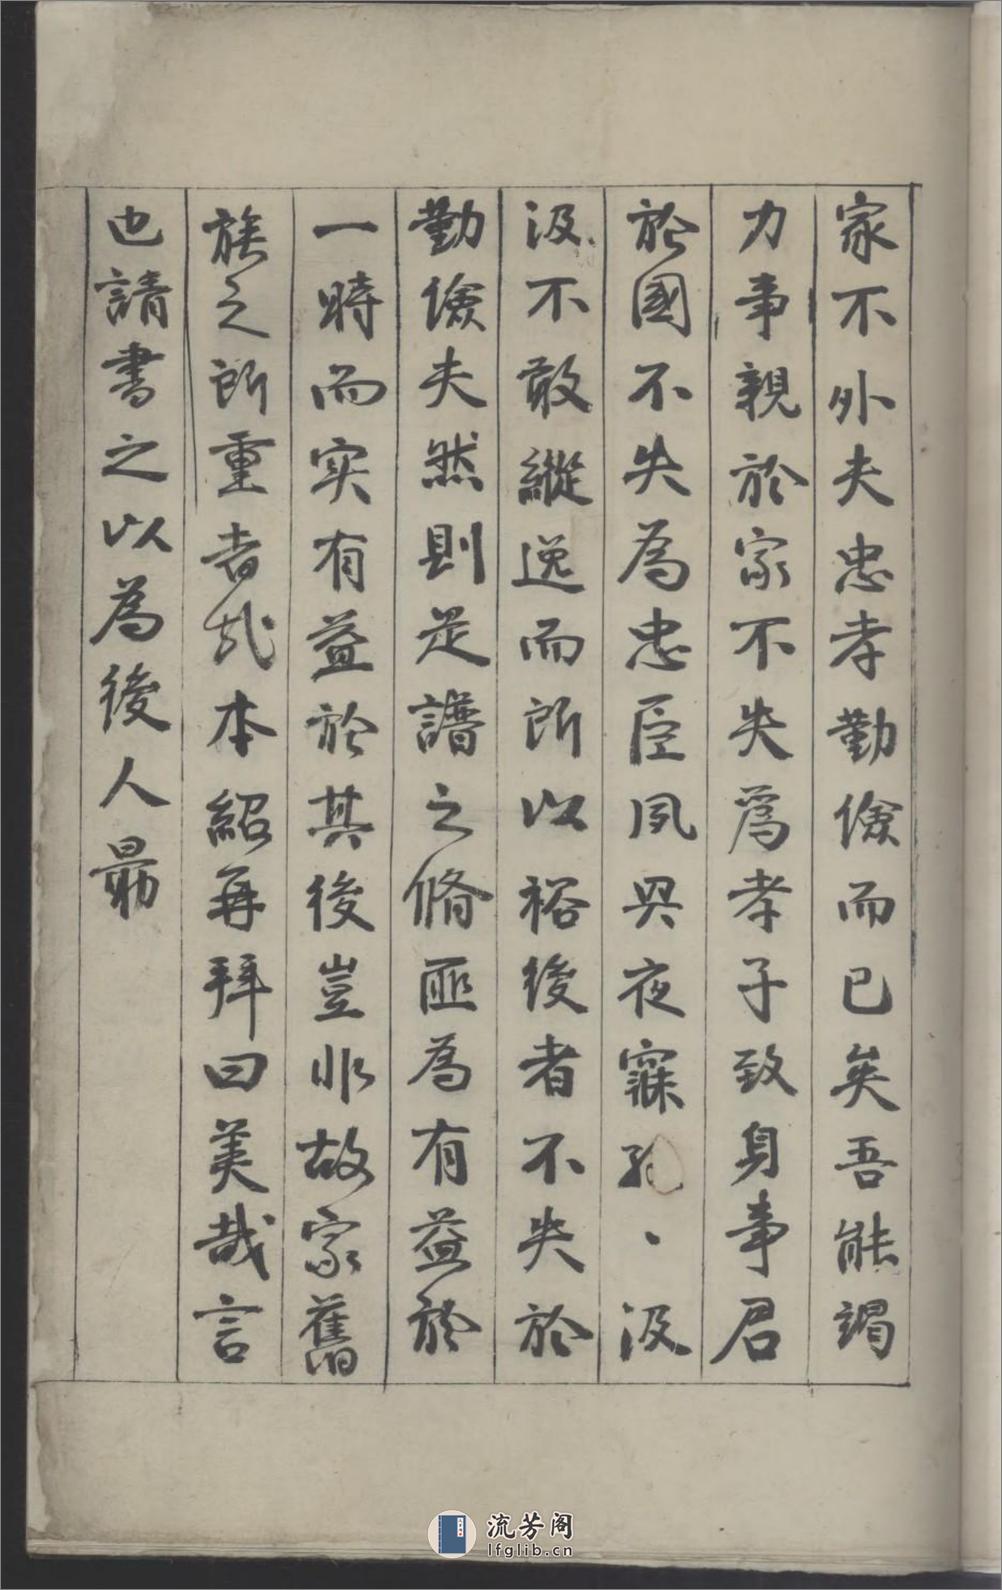 家不外夫忠孝勤儉而已矣吾能竭
力事親於家不失爲孝子致身事君
於國不失為忠臣夙興夜寐孜、汲
汲不敢縱逸而所以裕後者不失於
勤儉夫然則是譜之脩匪為有益於
一時而实有益於其後豈非故家舊
族之所重者哉本紹再拜曰美哉言
也請書之以為後人勗
流芳阁
lfglib.cn